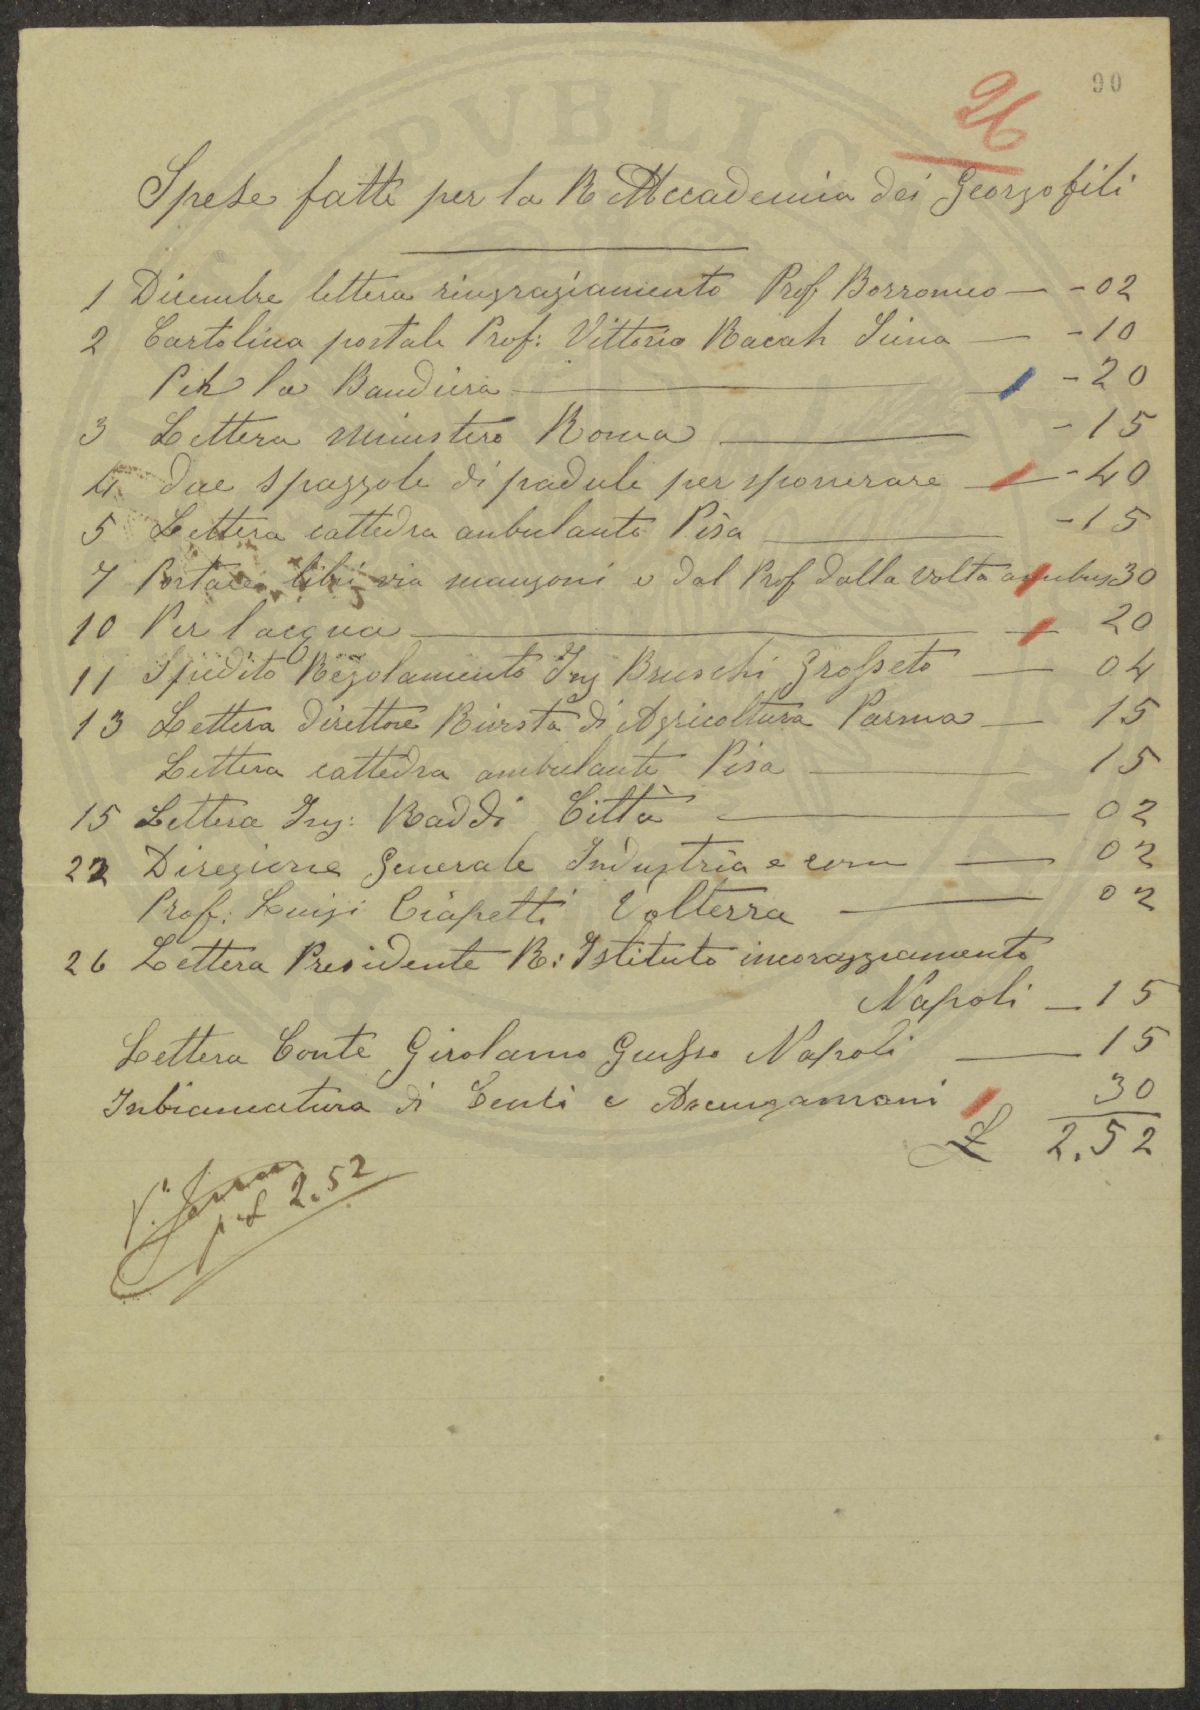 90
26
Spese fatte per la R Accademia dei Georgofili
1 Dicembre lettera ringraziamento Prof Borromeo - 02
2 Cartolina postale Prof: Vittorio Racah Siena - 10
Per la Bandiera - 20
3 Lettera ministero Roma - 15
4 due spazzole di padule per spolverare - 40
5 Lettera cattedra anbulante Pisa - 15
7 Portare libri via manzoni e dal Prof dalla Volta omnibus 30
10 Per l acqua 20
11 Spedito Regolamento Ing Bruschi Grosseto 04
13 Lettera direttore Rivista di Agricoltura Parma 15
Lettera cattedra ambulante Pisa 15
15 Lettera Ing: Raddi Città 02
22 Diregione Generale Industria e com 02
Prof: Luigi Ciapetti Volterra 02
26 Lettera Presidente R: Istituto incoraggiamento
Napoli - 15
Lettera Conte Girolamo Giusso Napoli 15
Inbiancatura di Cenci e Asciugamani 30
£ 2.52
V°.
p. £ 2.52
PVBLICA